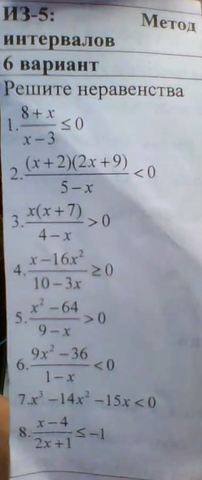 ИЗ-5: Метод
интервалов
6 вариант
Решите неравенства
1. (8+x)/(x-3) ≤ 0
2. ((x+2)(2x+9))/(5-x) < 0
3. (x(x+7))/(4-x) > 0
4. (x-16x²)/(10-3x) ≥ 0
5. (x²-64)/(9-x) > 0
6. (9x²-36)/(1-x) < 0
7. x³-14x²-15x < 0
8. (x-4)/(2x+1) ≤ -1